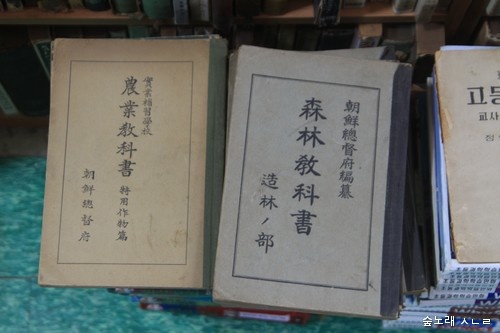 實業補習學校
農業教科書 特用作物篇
朝鮮總督府
朝鮮總督府編纂
森林教科書
造林ノ部
고등
교사
숲노래 ㅅㄴㄹ